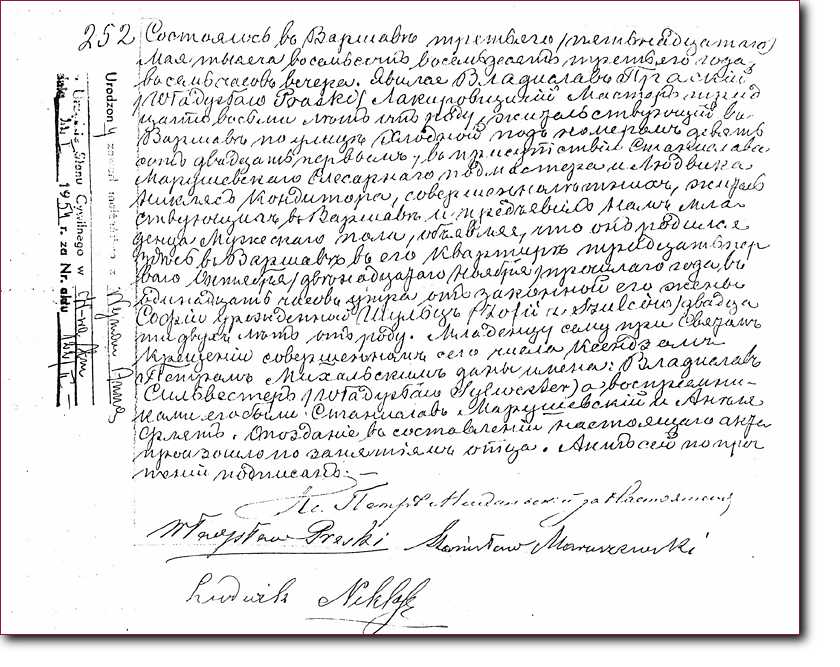 252 Состоялось въ Варшавѣ третьяго /пятьнадцатаго/
Мая тысяча восемьсотъ восемьдесятъ третьяго года,
восемь часовъ вечера. Явился Владиславъ Праский
/Władysław Praski/ Лакировщицкій Мастеръ трид
цати восьми лѣтъ отъ роду, жительствующій въ
Варшавѣ по улицѣ Хлодной подъ номеромъ девять
сотъ двадцать первымъ, въ присутствіи Станислава
Марушевскаго Слесарнаго подмастера и Людвика
Никлясъ Кондитора, совершеннолѣтнихъ, житель
ствующихъ въ Варшавѣ и предъявилъ Намъ мла
денца Мужескаго пола, объявляя, что онъ родился
здѣсь въ Варшавѣ въ его Квартирѣ тридцать пер
ваго Октября /двѣнадцатаго Ноября/ прошлаго года, въ
Единадцать часовъ утра отъ законной его жены
Софіи урожденной Шульцъ /Zofii z Szulców/ двадца
ти двухъ лѣтъ отъ роду. Младенцу сему при Святомъ
Крещеніи совершенномъ сего числа Ксендзомъ
Петромъ Михальскимъ даны имена: Владиславъ
Сильвестеръ /Władysław Sylwester/ а воспріемни-
ками его были: Станиславъ Марушевскій и Антон
Опозданіе въ составленіи настоящаго акта
произошло по занятіямъ отца. Актъ сей по про
чтеніи подписанъ: —
Кс. Петръ Михальскій за Настоятеля
Władysław Praski Stanisław Maruszewski
Ludwik Niklas
Urodzony zawarł małżeństwo z
Anną
Urzędzie Stanu Cywilnego w
1954 r. za Nr. aktu